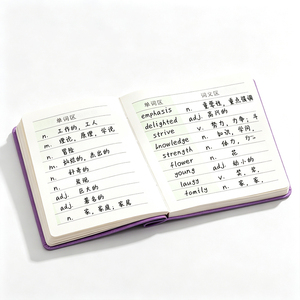 单词区
n. 工作的, 工人
n. 理论, 原理, 学说
n. 冒险
adj. 巨大的
adj. 著名的
n. 家, 家庭, 家属
单词区 词义区
emphasis n. 重要性, 重点强调
delighted adj. 高兴的
strive v. 努力, 力争, 斗
knowledge n. 知识, 学问,
strength n. 体力, 力
flower n.
young adj. 幼小的
family n. 家, 家,